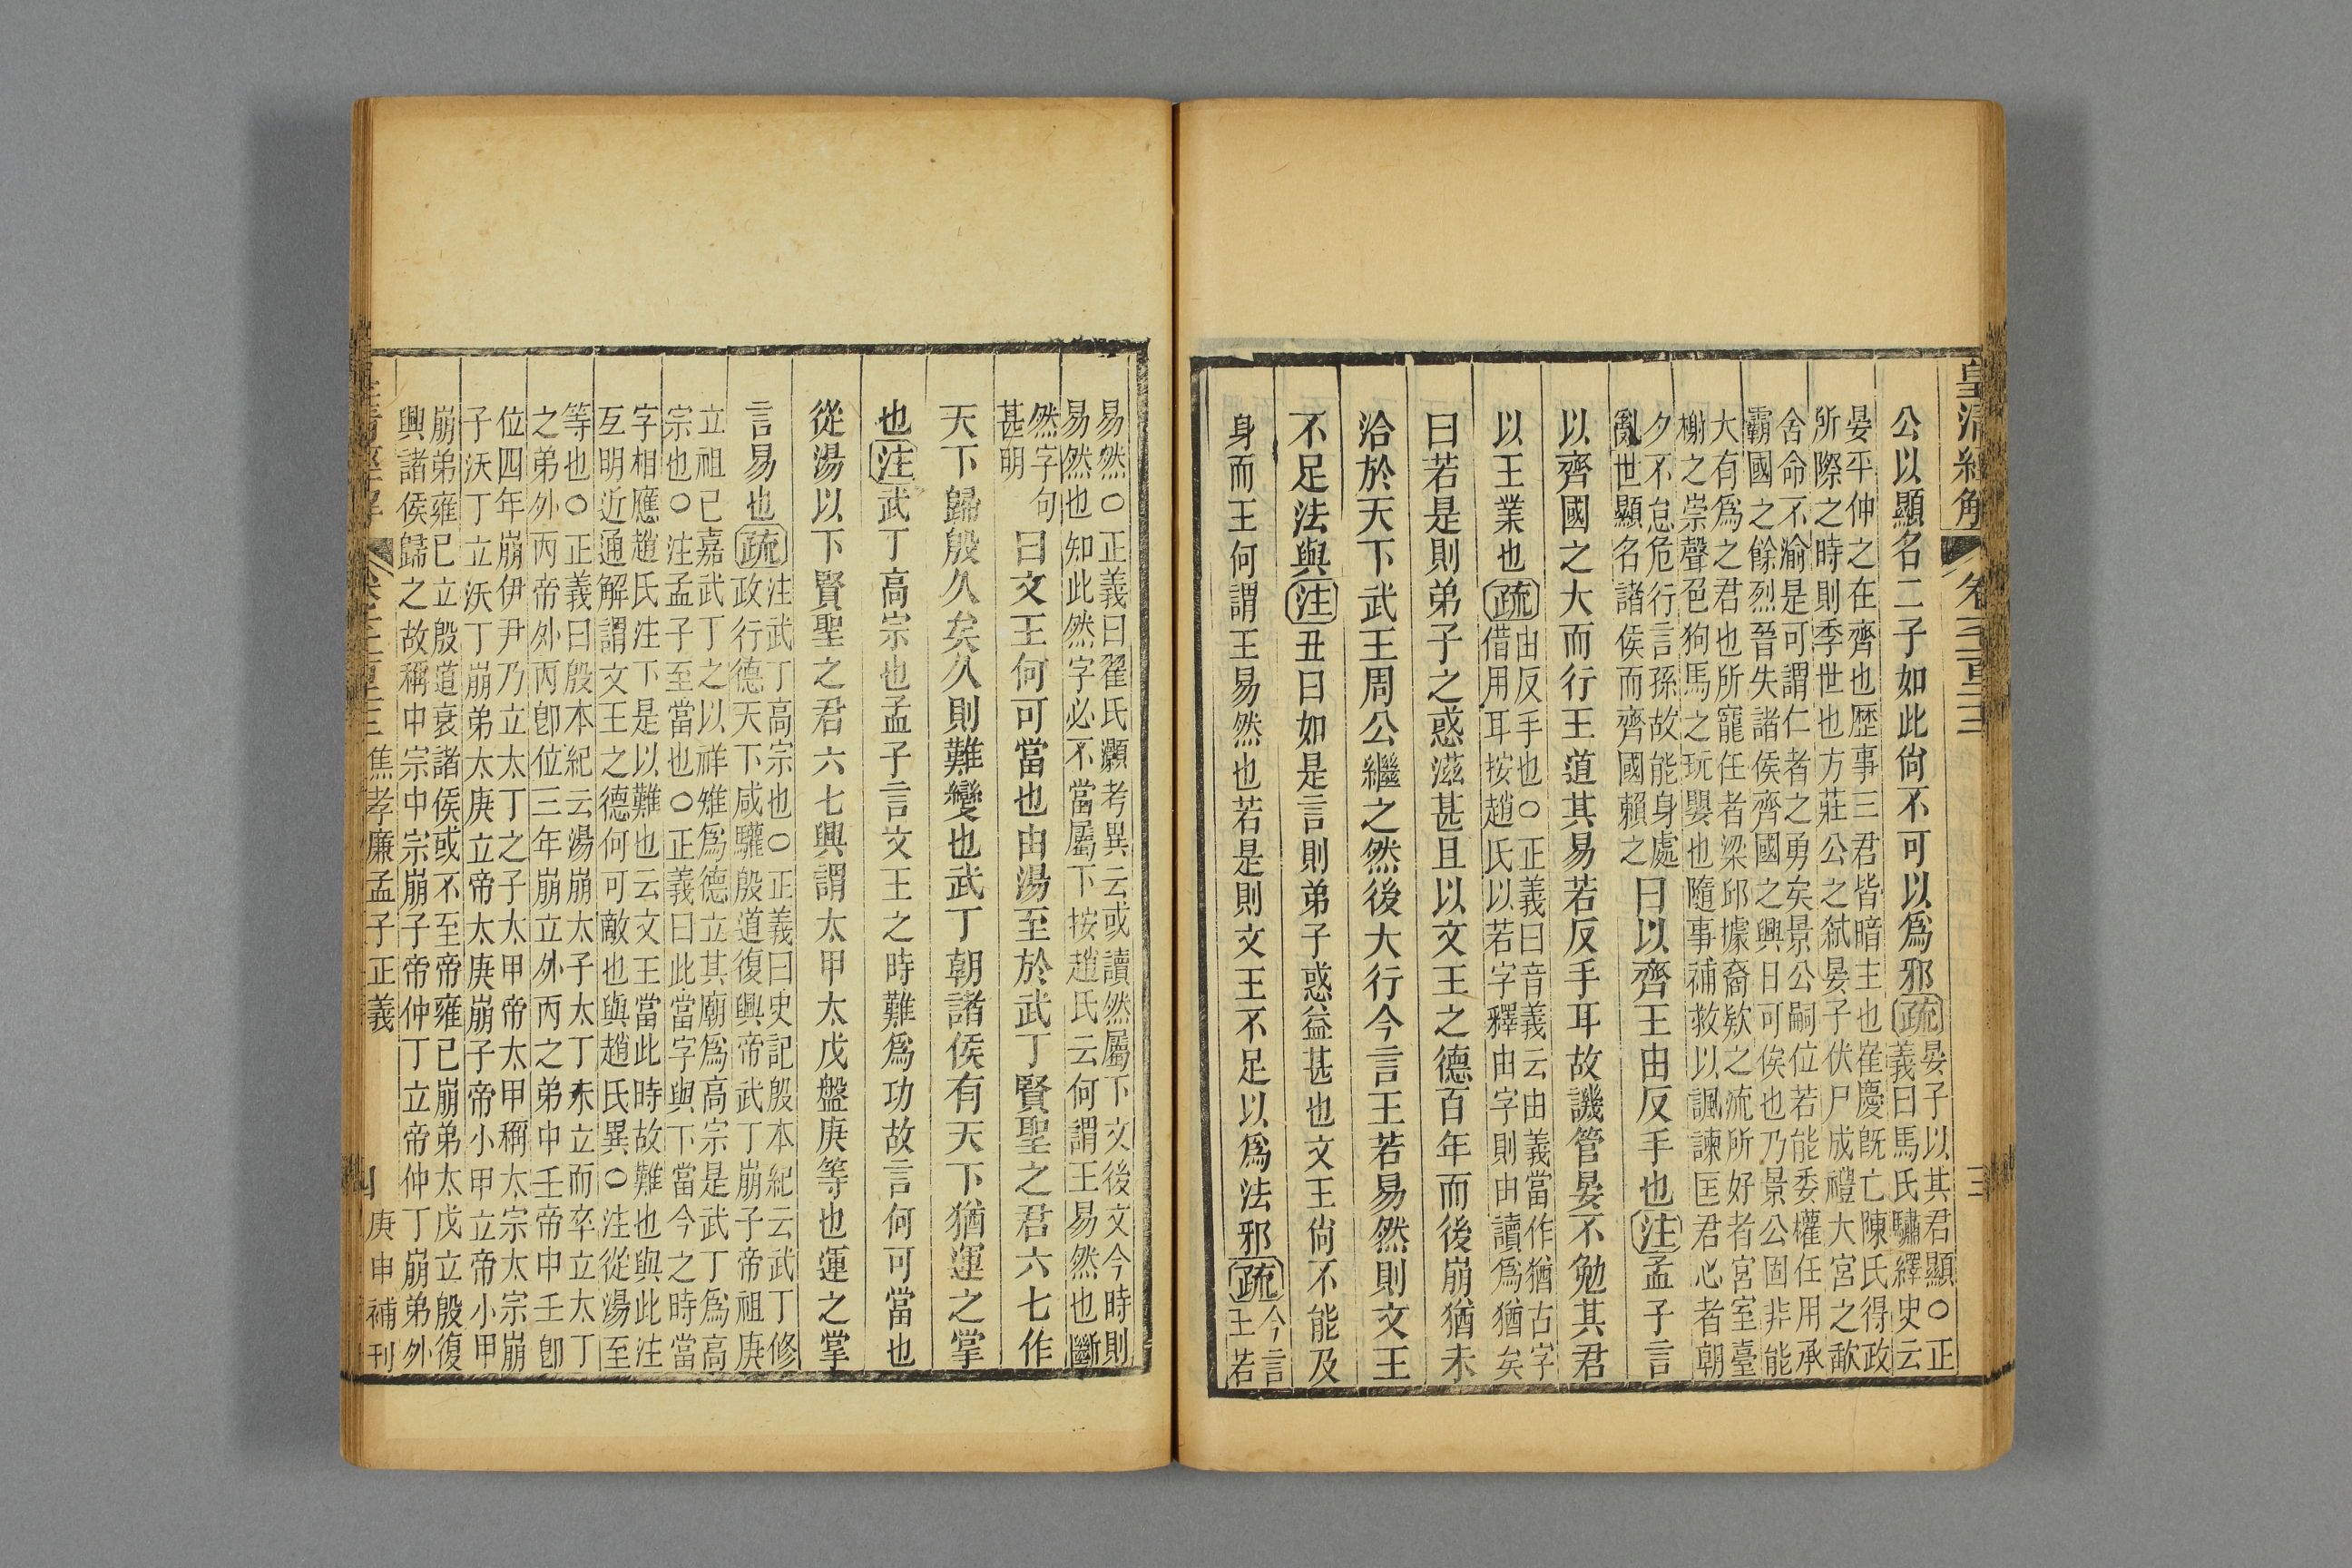 皇清經解
公以顯名二子如此尙不可以爲邪疏晏子以其君顯○正
義曰馬氏驌繹史云
晏平仲之在齊也歷事三君皆暗主也崔慶旣亡陳氏得政
所際之時則季世也方莊公之弒晏子伏尸成禮大宮之歃
舍命不渝是可謂仁者之勇矣景公嗣位若能委權任用承
霸國之餘烈晉失諸侯齊國之興日可俟也乃景公固非能
大有爲之君也所寵任者梁邱據裔欵之流所好者宮室臺
榭之崇聲色狗馬之玩嬰也隨事補救以諷諫匡君心者朝
夕不怠危行言孫故能身處
亂世顯名諸侯而齊國賴之
曰以齊王由反手也注孟子言
以齊國之大而行王道其易若反手耳故譏管晏不勉其君
以王業也疏由反手也○正義曰音義云由義當作猶古字
借用耳按趙氏以若字釋由字則由讀爲猶矣
曰若是則弟子之惑滋甚且以文王之德百年而後崩猶未
洽於天下武王周公繼之然後大行今言王若易然則文王
不足法與注丑曰如是言則弟子惑益甚也文王尙不能及
身而王何謂王易然也若是則文王不足以爲法邪疏今言
王若
易然○正義曰翟氏灝考異云或讀然屬下文後文今時則
易然也知此然字必不當屬下按趙氏云何謂王易然也斷
然字句
甚明
曰文王何可當也由湯至於武丁賢聖之君六七作
天下歸殷久矣久則難變也武丁朝諸侯有天下猶運之掌
也注武丁高宗也孟子言文王之時難爲功故言何可當也
從湯以下賢聖之君六七興謂太甲太戊盤庚等也運之掌
言易也疏注武丁高宗也○正義曰史記殷本紀云武丁修
政行德天下咸驩殷道復興帝武丁崩子帝祖庚
立祖己嘉武丁之以祥雉爲德立其廟爲高宗是武丁爲高
宗也○注孟子至當也○正義曰此當字與下當今之時當
字相應趙氏注下是以難也云文王當此時故難也與此注
互明近通解謂文王之德何可敵也與趙氏異○注從湯至
等也○正義曰殷本紀云湯崩太子太丁未立而卒立太丁
之弟外丙帝外丙卽位三年崩立外丙之弟中壬帝中壬卽
位四年崩伊尹乃立太丁之子太甲帝太甲稱太宗太宗崩
子沃丁立沃丁崩弟太庚立帝太庚崩子帝小甲立帝小甲
崩弟雍己立殷道衰諸侯或不至帝雍己崩弟太戊立殷復
興諸侯歸之故稱中宗中宗崩子帝仲丁立帝仲丁崩弟外
焦孝廉孟子正義
庚申補刊